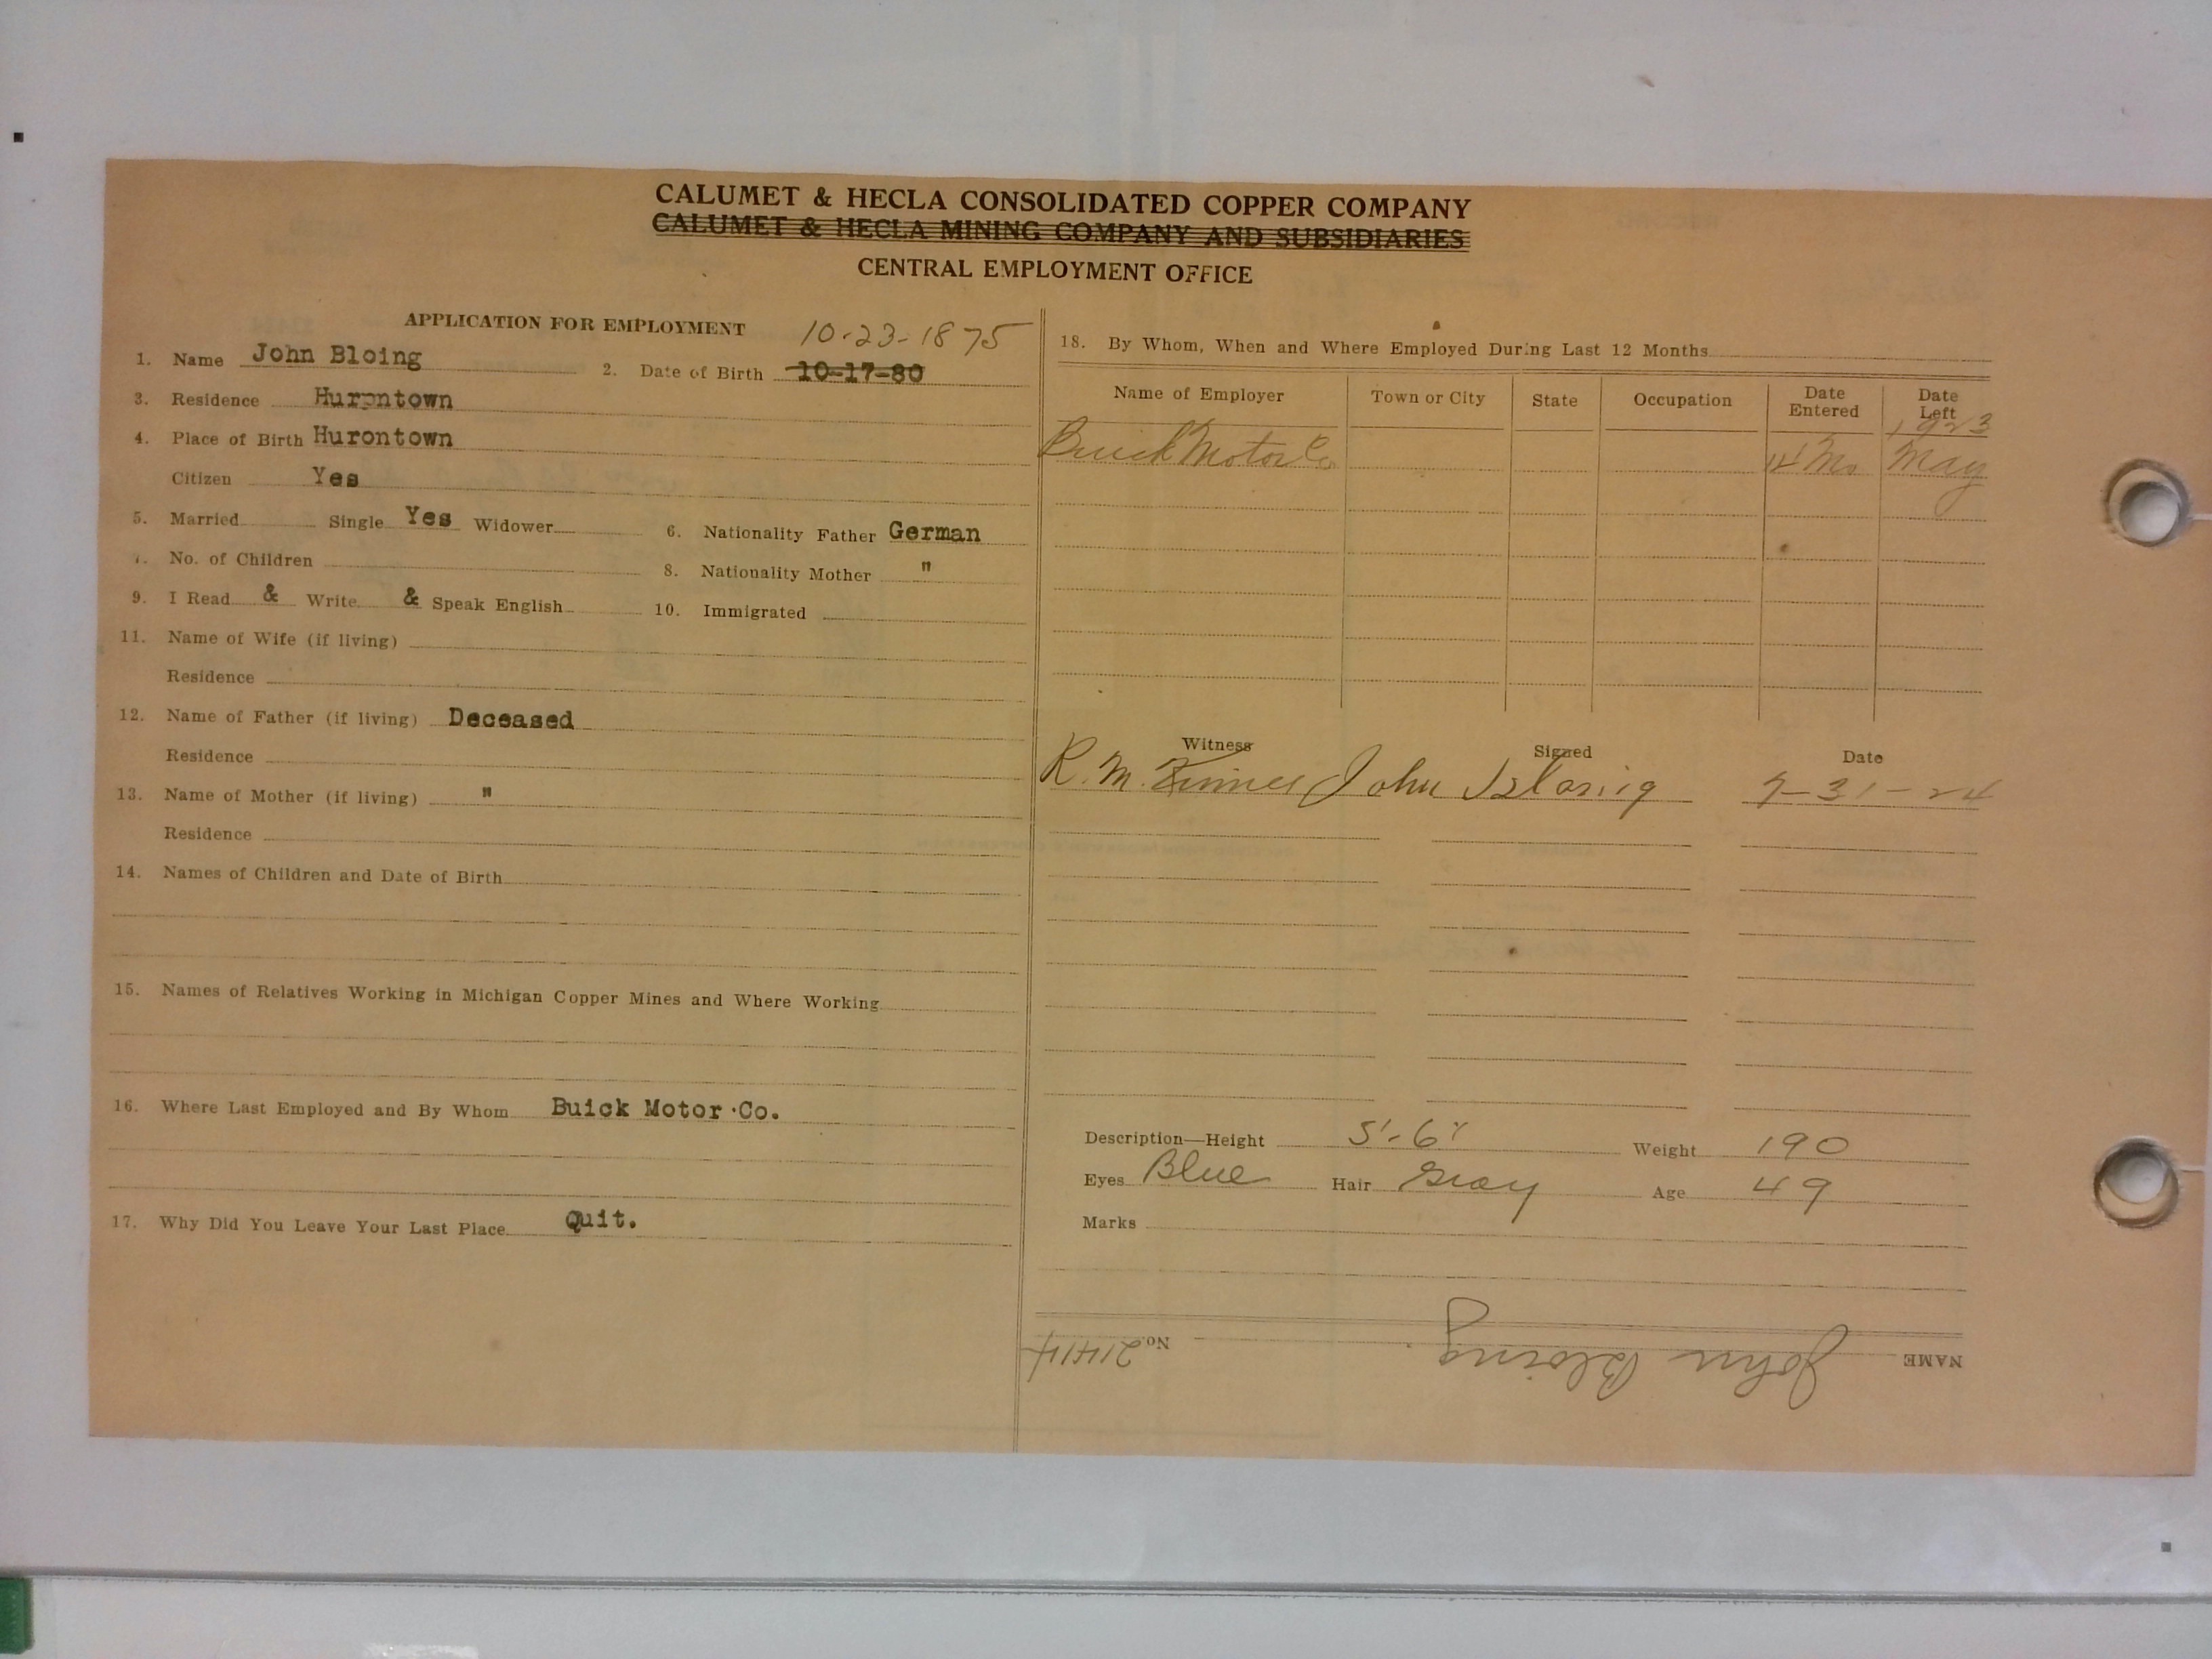 CALUMET & HECLA CONSOLIDATED COPPER COMPANY
CALUMET & HECLA MINING COMPANY AND SUBSIDIARIES
CENTRAL EMPLOYMENT OFFICE
APPLICATION FOR EMPLOYMENT
10-23-1875
1. Name John Bloing 2. Date of Birth 10-17-80
3. Residence Hurontown
4. Place of Birth Hurontown
Citizen Yes
5. Married Single Yes Widower 6. Nationality Father German
7. No. of Children 8. Nationality Mother "
9. I Read & Write & Speak English 10. Immigrated
11. Name of Wife (if living)
Residence
12. Name of Father (if living) Deceased
Residence
13. Name of Mother (if living) "
Residence
14. Names of Children and Date of Birth
15. Names of Relatives Working in Michigan Copper Mines and Where Working
16. Where Last Employed and By Whom Buick Motor Co.
17. Why Did You Leave Your Last Place Quit.
18. By Whom, When and Where Employed During Last 12 Months
Name of Employer Town or City State Occupation Date Entered Date Left
1923
Buick Motor Co Mo May
Witness Signed Date
R. M. John 7-31-24
Description—Height 5'-6" Weight 190
Eyes Blue Hair Gray Age 49
Marks
NAME John Bloing No. 21414